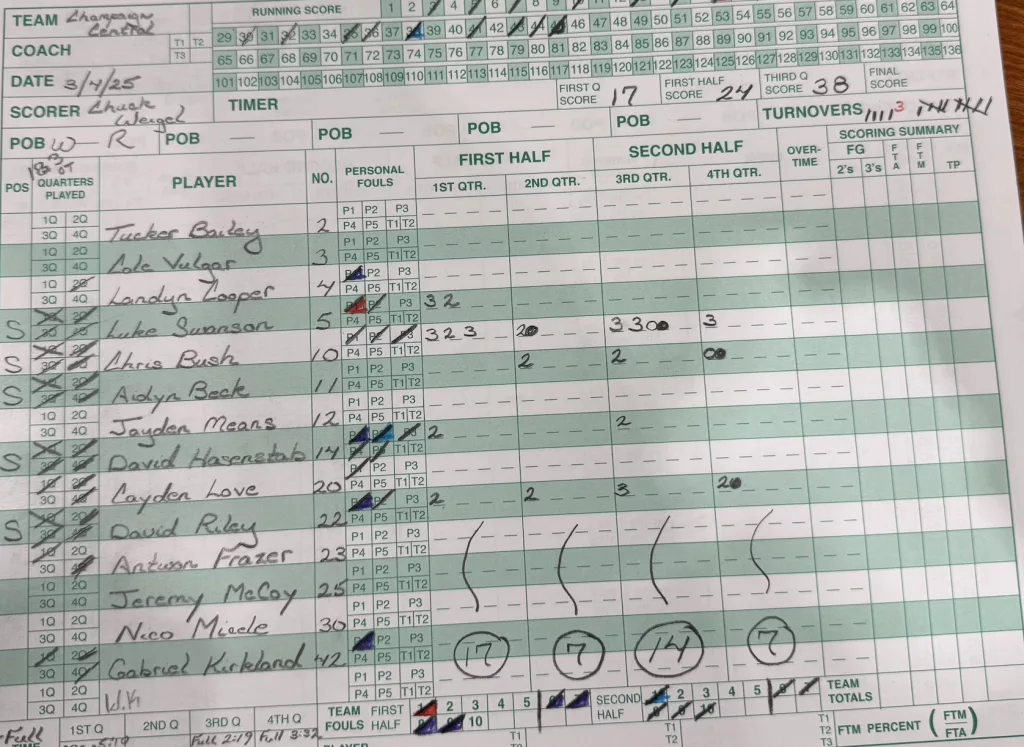 TEAM Champaign Central
RUNNING SCORE 1 2 3 4 5 6 7 8 9
29 30 31 32 33 34 35 36 37 38 39 40 41 42 43 44 45 46 47 48 49 50 51 52 53 54 55 56 57 58 59 60 61 62 63 64
COACH T1 T2 T3
65 66 67 68 69 70 71 72 73 74 75 76 77 78 79 80 81 82 83 84 85 86 87 88 89 90 91 92 93 94 95 96 97 98 99 100
DATE 3/4/25
101 102 103 104 105 106 107 108 109 110 111 112 113 114 115 116 117 118 119 120 121 122 123 124 125 126 127 128 129 130 131 132 133 134 135 136
SCORER Chuck Weigel
TIMER
FIRST Q SCORE 17 FIRST HALF SCORE 24 THIRD Q SCORE 38 FINAL SCORE
POB W - R POB — POB — POB — POB — TURNOVERS 3
POS QUARTERS PLAYED PLAYER NO. PERSONAL FOULS FIRST HALF SECOND HALF OVER-TIME SCORING SUMMARY
1ST QTR. 2ND QTR. 3RD QTR. 4TH QTR. FG 2's 3's FTA FTM TP
1Q 2Q 3Q 4Q Tucker Bailey 2 P1 P2 P3 P4 P5 T1 T2
1Q 2Q 3Q 4Q Cole Vulgar 3 P1 P2 P3 P4 P5 T1 T2
1Q 2Q 3Q 4Q Landyn Cooper 4 P1 P2 P3 P4 P5 T1 T2
S Luke Swanson 5 P1 P2 P3 P4 P5 T1 T2 3 2
S Chris Bush 10 P1 P2 P3 P4 P5 T1 T2 3 2 3 2 0 3 3 0 0 3
S Aidyn Beck 11 P1 P2 P3 P4 P5 T1 T2 2 2 0 0
1Q 2Q 3Q 4Q Jayden Means 12 P1 P2 P3 P4 P5 T1 T2
S David Hasenstab 14 P1 P2 P3 P4 P5 T1 T2 2 2
1Q 2Q 3Q 4Q Cayden Love 20 P1 P2 P3 P4 P5 T1 T2
S David Riley 22 P1 P2 P3 P4 P5 T1 T2 2 2 3 2 0
1Q 2Q 3Q 4Q Antwon Frazer 23 P1 P2 P3 P4 P5 T1 T2
1Q 2Q 3Q 4Q Jeremy McCoy 25 P1 P2 P3 P4 P5 T1 T2
1Q 2Q 3Q 4Q Nico Micele 30 P1 P2 P3 P4 P5 T1 T2
1Q 2Q 3Q 4Q Gabriel Kirkland 42 P1 P2 P3 P4 P5 T1 T2 17 7 14 7
1Q 2Q 3Q 4Q P1 P2 P3 P4 P5 T1 T2
TEAM FOULS FIRST HALF 1 2 3 4 5 6 7 8 9 10 SECOND HALF 1 2 3 4 5 6 7 8 9 10 TEAM TOTALS
Full 1ST Q 2ND Q 3RD Q 4TH Q
TIME Full 2:19 Full 3:32
T1 T2 T1 T2 T1 T2 T3 FTM PERCENT (FTM FTA)